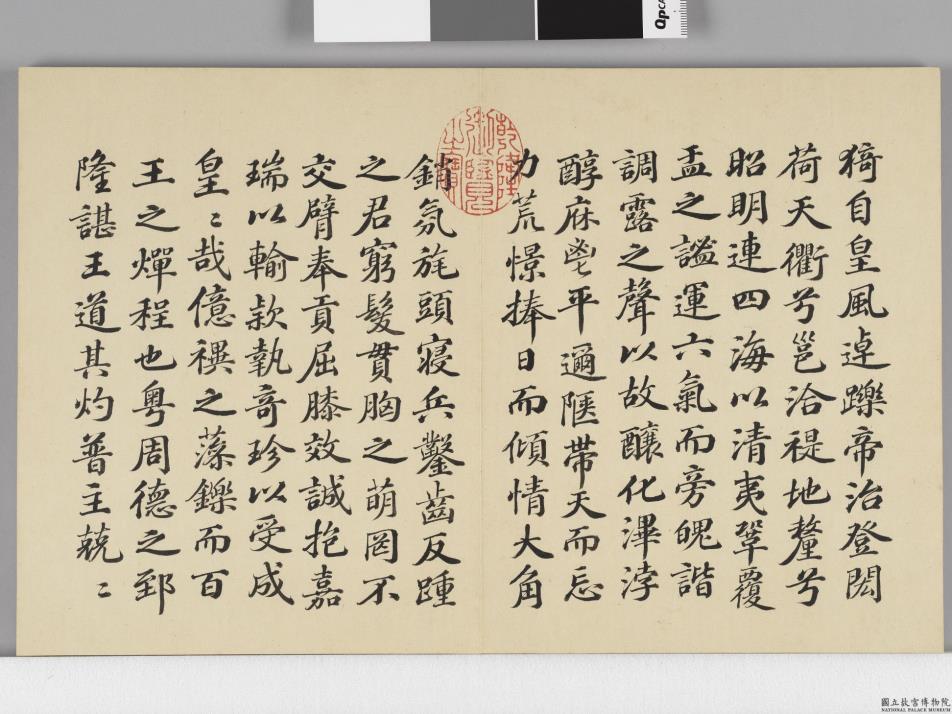 猗自皇風逴躒帝治登閎
荷天衢兮邕洽禔地釐兮
昭明連四海以清夷鞏覆
盂之謐運六氣而旁魄諧
調露之聲以故釀化渾浡
醇庥鬯平邇陿帶天而忘
力荒憬捧日而傾情大角
銷氛旄頭寢兵鑿齒反踵
之君窮髮貫胸之萌罔不
交臂奉貢屈膝效誠抱嘉
瑞以輸款執奇珍以受成
皇〻哉億禩之藻鑠而百
王之燀程也粵周德之郅
隆諶王道其灼普主兢〻
國立故宮博物院
NATIONAL PALACE MUSEUM
QpCA